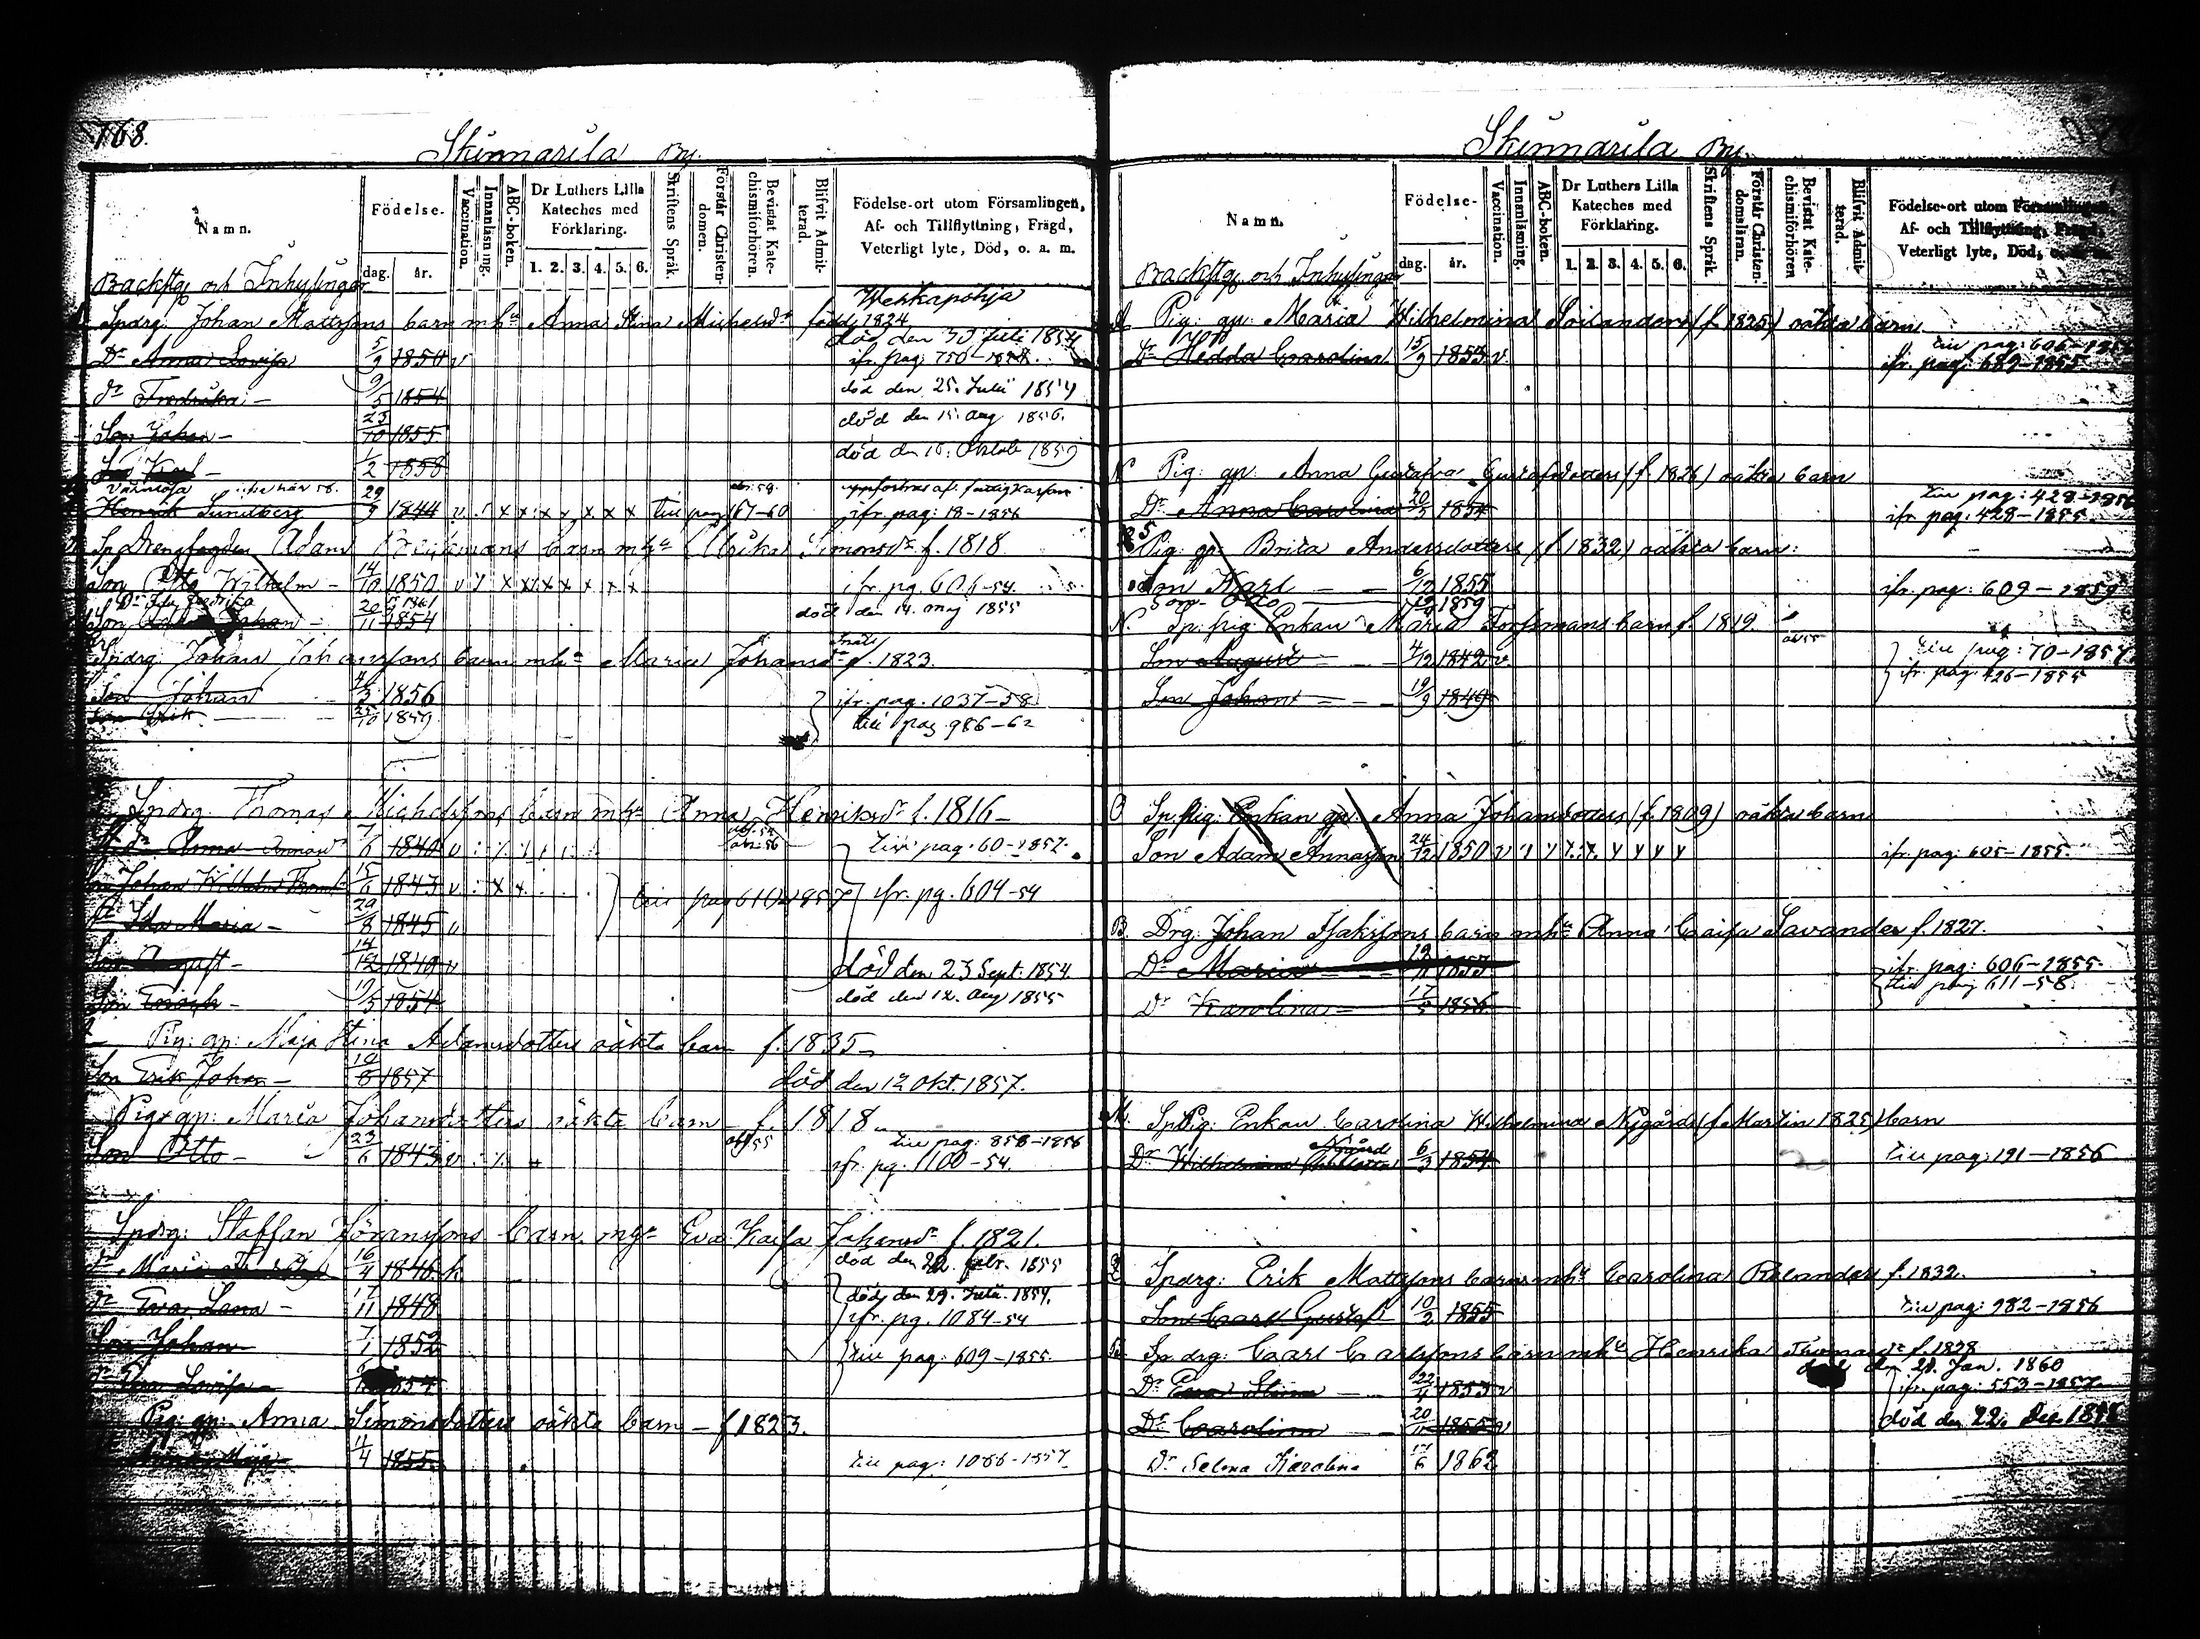 168.
Skinnarila By.
Namn.
Födelse-
dag.
år.
Vaccination.
Innanläsning.
ABC-boken.
Dr Luthers Lilla
Kateches med
Förklaring.
1. 2. 3. 4. 5. 6.
Skriftens Språk.
Förstår Christen-
domen.
Bevistat Kate-
chismiförhören.
Blifvit Admit-
terad.
Födelse-ort utom Församlingen,
Af- och Tillflyttning, Frägd,
Veterligt lyte, Död, o. a. m.
Backstg och Inhysingar
Wehkapohja
Spdrg. Johan Mattssons barn mha Anna Stina Michelsdr född 1824
död den 30 Juli 1854
Dr Anna Lovisa 5/9 1850 v ifr. pag. 750-
dr Fredrika - 9/5 1854 död den 25. Juli 1854
Son Johan - 23/10 1855 död den 15. Aug 1856.
Son Karl - 1/2 1858 död den 16. Oktob 1859
Henrik Sundberg 29/9 1844 v till pag 167-60 ifr. pag: 18-1856
Adam barn mha Ulrika Simonsdr f. 1818
Son Otto Wilhelm - 14/10 1850 v ifr pg. 606-54.
Dr Ida Fredrika 1861
Son Johan - 20/11 1854 död den 14. maj 1855
Spdrg Johan Johanssons barn mha Maria Johansdr f. 1823.
Son Johan 4/3 1856 ifr. pag. 1037-58
Son Erik 25/10 1859 till pag 986-62
Spdrg. Thomas Michelssons barn mha Anna Henriksdr f. 1816-
Anna 7/6 1840 v till pag. 60-1857.
Johan Wilhelm 15/6 1843 v till pag 610-1857 ifr. pg. 604-54
dr Ida Maria - 29/8 1845 v
Son August - 14/12 1849 v död den 23 Sept. 1854.
Son - 19/5 1854 död den 12. Aug 1855
Pig: gp: Maja Stina Adamsdotters oäkta barn f. 1835-
Son Erik Johan - 1857 död den 12 Okt. 1857.
Pig: gp: Maria Johansdotters oäkta barn f. 1818-
till pag: 858-1856
Son Otto - 23/6 1843 v ifr. pg. 1100-54.
Spdrg: Staffan Göranssons barn mha Eva Kaisa Johansdr f. 1821.
dr Maria 16/4 1846 död den 22. febr. 1855
dr Eva Lena - 17/11 1848 död den 29. Juli. 1854.
ifr. pg. 1084-54
Son Johan 7/1 1852 till pag: 609-1855.
dr Eva Lovisa - 1854
Pig: gp: Anna Simonsdotters oäkta barn - f. 1823.
4/4 1855 till pag: 1066-1857
Skinnarila By.
Namn.
Födelse-
dag.
år.
Vaccination.
Innanläsning.
ABC-boken.
Dr Luthers Lilla
Kateches med
Förklaring.
1. 2. 3. 4. 5. 6.
Skriftens Språk.
Förstår Christen-
domsläran.
Bevistat Kate-
chismiförhören
Blifvit Admit-
terad.
Födelse-ort utom Församlingen,
Af- och Tillflyttning, Frägd,
Veterligt lyte, Död, o. a. m.
Backstg och Inhysingar
Pig: gp. Maria Wilhelmina (f. 1825) oäkta barn
Dr Hedda Carolina 15/9 1853 v ifr. pag: 689-1855
N. Pig: gp: Anna Gustafva Gustafsdotters (f. 1826) oäkta barn
till pag: 428-1856
Dr Anna Carolina 1854 ifr pag: 428-1855
Pig: gp: Brita Andersdotters (f 1832) oäkta barn:
Son Karl - 6/12 1855 ifr. pag: 609-1859
Son Otto 1859
N. Sp: pig: Enkan Maria Forssmans barn f. 1819.
Son August - 4/12 1842 v till pag: 70-1857
ifr. pag: 426-1855
Son Johan - 19/9 1849
O Sp. pig: Enkan gp: Anna Johansdotters (f. 1809) oäkta barn
Son Adam Annasson 24/12 1850 v ifr. pag: 605-1855.
B. Drg: Johan Isakssons barn mha Anna Caisa Savander f. 1827.
Dr Maria 1853 ifr. pag: 606-1855
till pag 611-58
Dr Karolina - 1856
M. Sp: Pig: Enkan Carolina Wilhelmina Nygårds (f. Martin 1825) barn
Dr Wilhelmina Nygård 6/3 1854 till pag: 191-1856
Spdrg: Erik Mattssons barn mha Carolina f. 1832.
Son Carl Gustaf 10/2 1855 till pag: 982-1856
Sp. drg: Carl Carlssons barn mha Henrika Thomasdr f. 1828
död den 28. Jan. 1860
Dr Eva Stina - 22/4 1853 v ifr. pag: 553-1857
Dr Carolina - 1855 v död den 22. Dec 1858
Dr Selma Karolina 17/6 1862